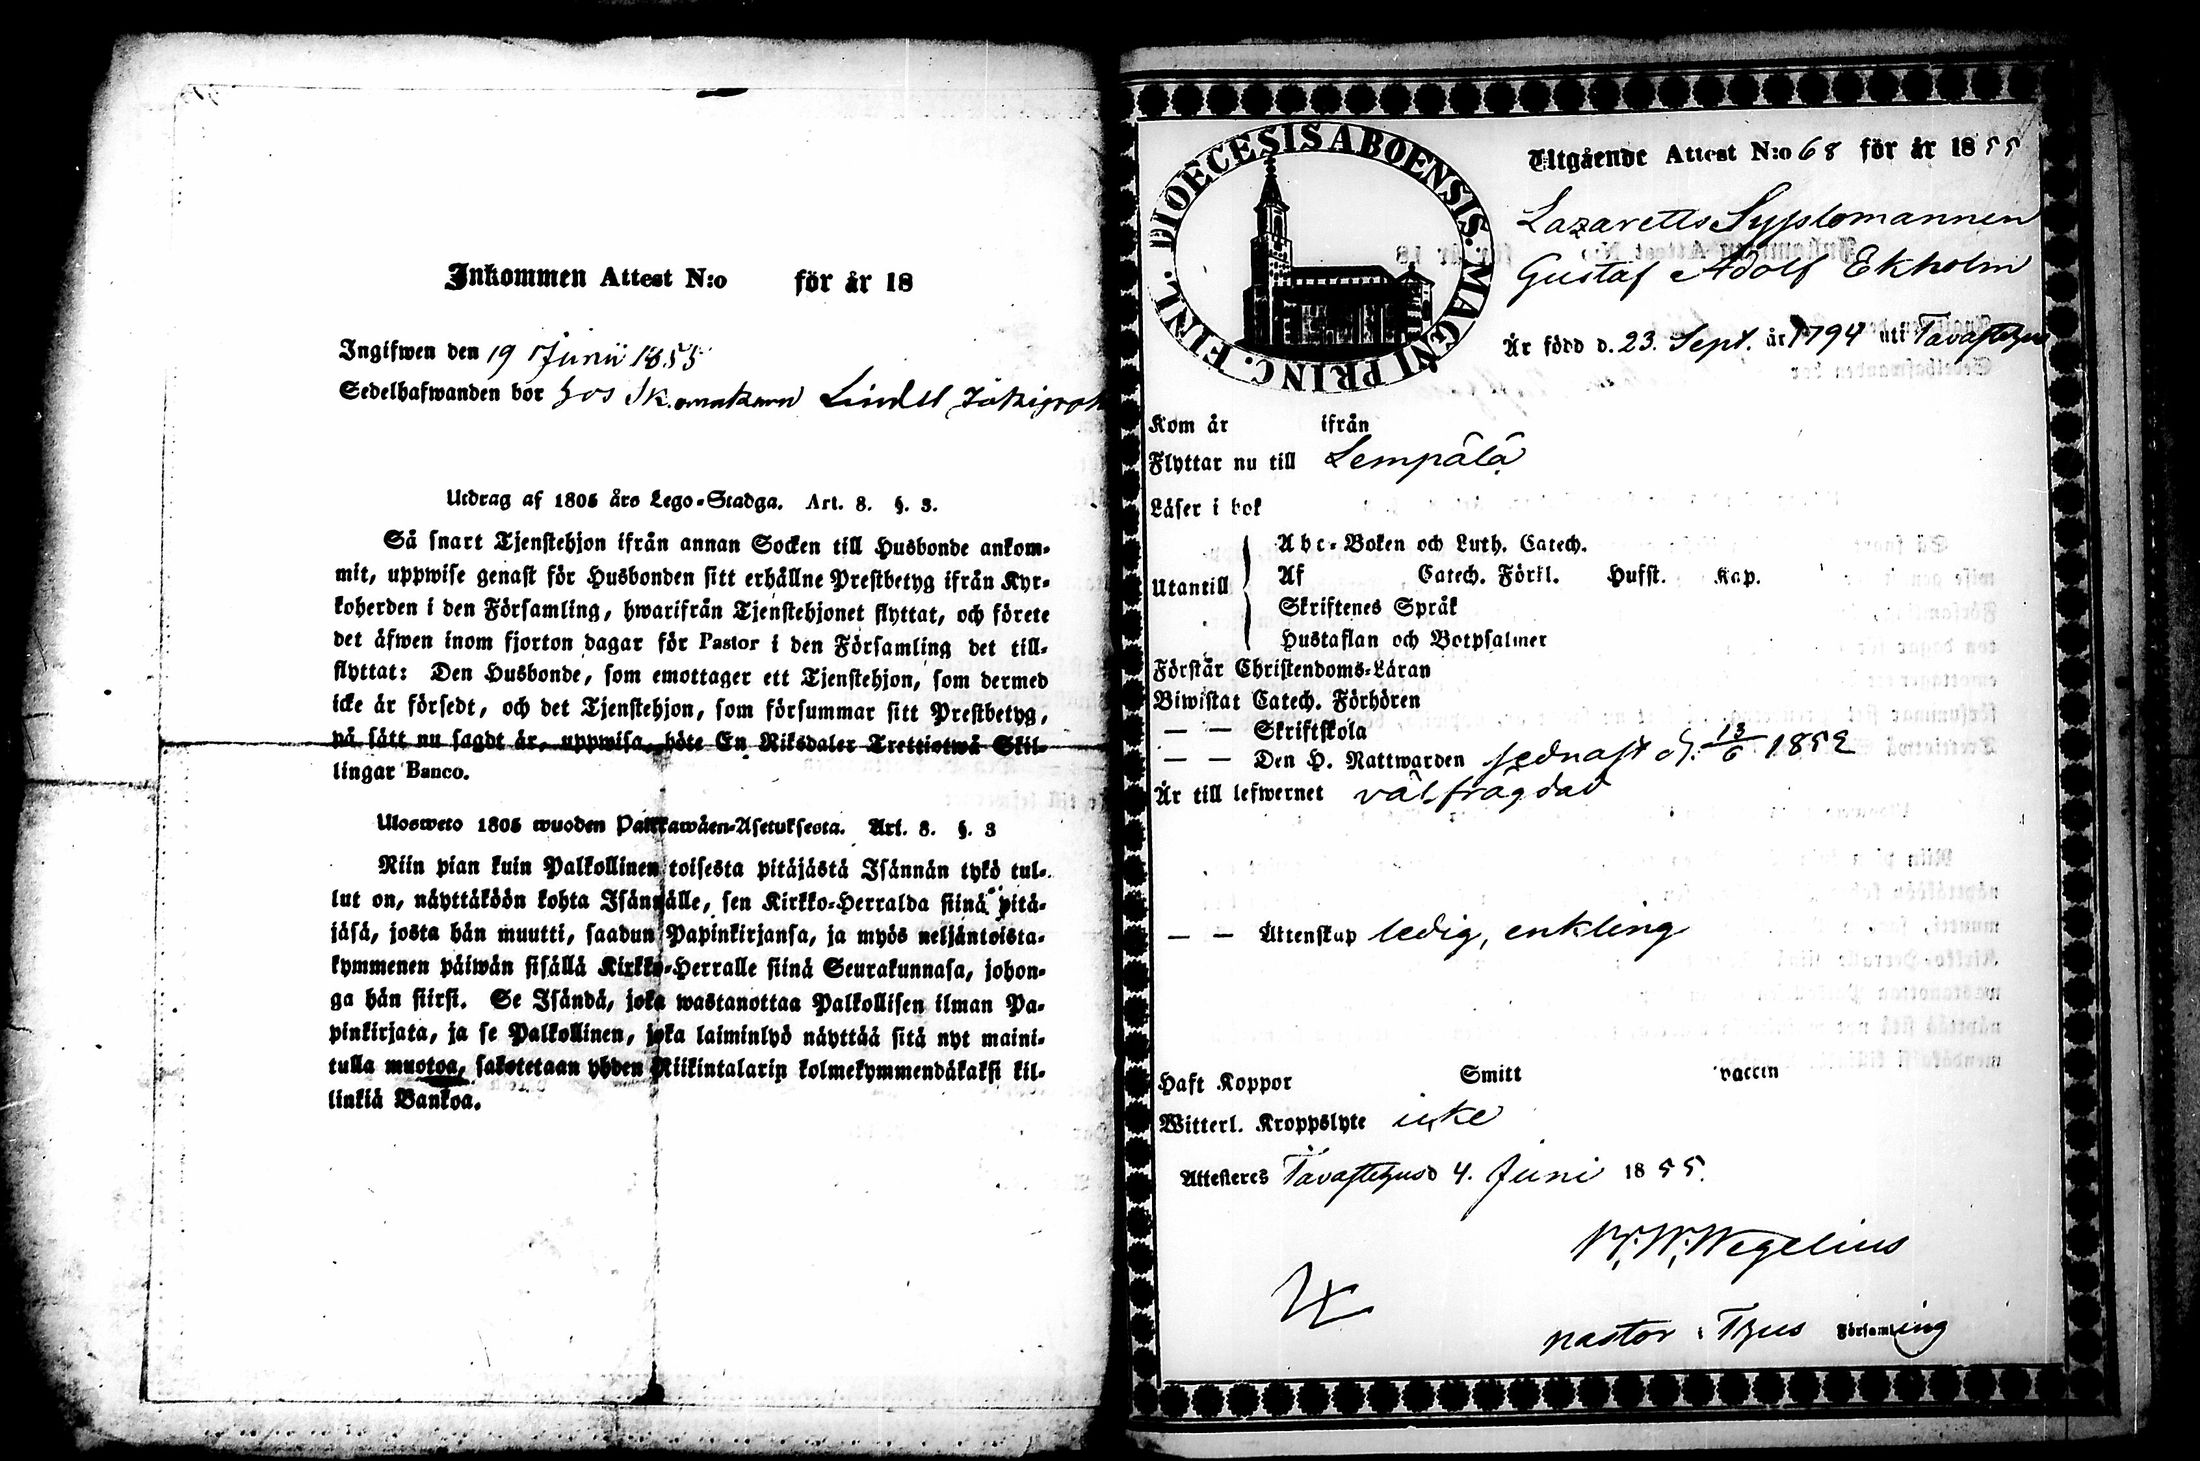 Inkommen Attest N:o för år 18
Ingifwen den 19 Junii 1855
Sedelhafwanden bor hos Sk.omakaren Lindell
Utdrag af 1805 års Lego-Stadga. Art. 8. §. 3.
Så snart Tjenstehjon ifrån annan Socken till Husbonde ankom-
mit, uppwise genast för Husbonden sitt erhållne Prestbetyg ifrån Kyr-
koherden i den Församling, hwarifrån Tjenstehjonet flyttat, och förete
det äfwen inom fjorton dagar för Pastor i den Församling det till-
flyttat: Den Husbonde, som emottager ett Tjenstehjon, som dermed
icke är försedt, och det Tjenstehjon, som försummar sitt Prestbetyg,
på sätt nu sagdt är, uppwisa, böte En Riksdaler Trettiotwå Skil-
lingar Banco.
Ulosweto 1805 wuoden Palkkawäen-Asetuksesta. Art. 8. §. 3
Niin pian kuin Palkollinen toisesta pitäjästä Isännän tykö tul-
lut on, näyttäköön kohta Isännälle, sen Kirkko-Herralda siinä pitä-
jäsä, josta hän muutti, saadun Papinkirjansa, ja myös neljäntoista-
kymmenen päiwän sisällä Kirkko-Herralle siinä Seurakunnasa, johon-
ga hän siirsi. Se Isändä, joka wastanottaa Palkollisen ilman Pa-
pinkirjata, ja se Palkollinen, joka laiminlyö näyttää sitä nyt maini-
tulla muotoa, sakotetaan yhden Riikintalarin kolmekymmendäkaksi kil-
linkiä Bankoa.
DIOECESIS ABOENSIS. MAGNI PRINC. FINL.
Utgående Attest N:o 68 för år 1855
Lazaretts Sysslomannen
Gustaf Adolf Ekholm
Är född d. 23. Sept. år 1794 uti Tavastehus
Kom år ifrån
Flyttar nu till Lempälä
Läser i bok
Utantill
Abc-Boken och Luth. Catech.
Af Catech. Förkl. Hufst. Kap.
Skriftenes Språk
Hustaflan och Botpsalmer
Förstår Christendoms-Läran
Biwistat Catech. Förhören
— — Skriftskola
— — Den H. Nattwarden sednast d. 13/6 1852
Är till lefwernet välfrägdad
— — Äktenskap ledig, enkling
Haft Koppor Smitt vaccin
Witterl. Kroppslyte icke
Attesteres Tavastehus d 4. Juni 1855.
W. Wegelius
pastor i Thus Församling